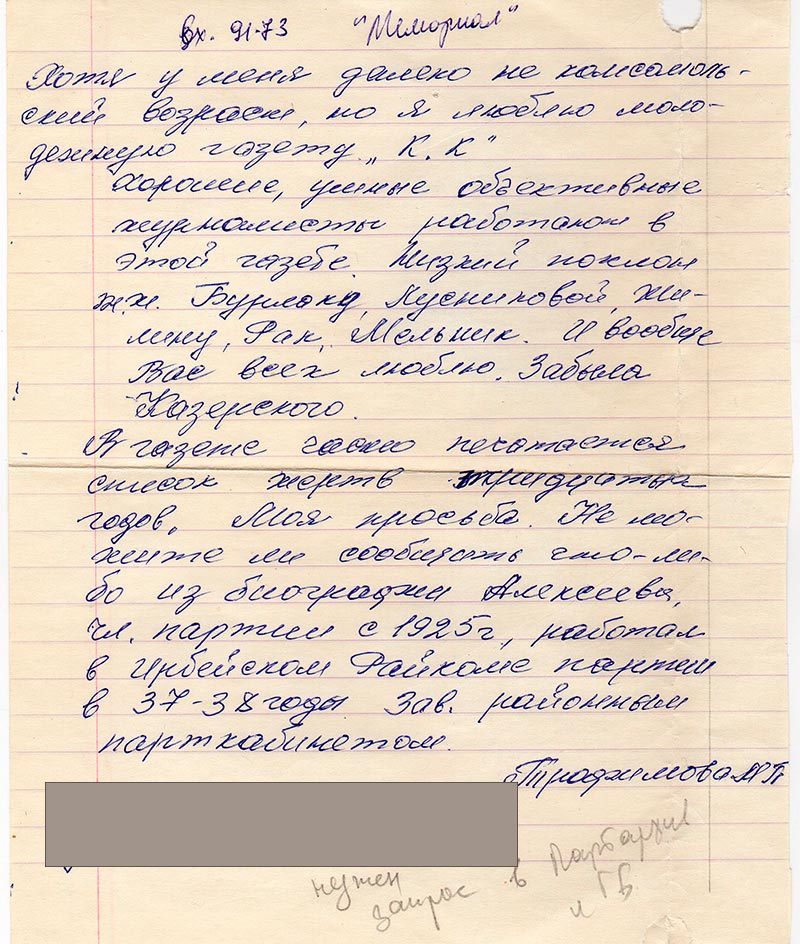 вх. 91-73 "Мемориал"
Хотя у меня далеко не комсомоль-
ский возраст, но я люблю моло-
дежную газету „К.К"
Хорошие, умные объективные
журналисты работают в
этой газете. Низкий поклон
т.т. Бурлаку, Кусниковой, Жи-
лину, Рак, Мельник. И вообще
Вас всех люблю. Забыла
Казерского.
В газете часто печатается
список жертв тридцатых
годов. Моя просьба. Не мо-
жите ли сообщить что-ли-
бо из биографии Алексеева,
чл. партии с 1925г, работал
в Ирбейском Райкоме партии
в 37-38 годы Зав. районным
парткабинетом.
Трафимова М П
нужен
запрос в Партархив
и ГБ